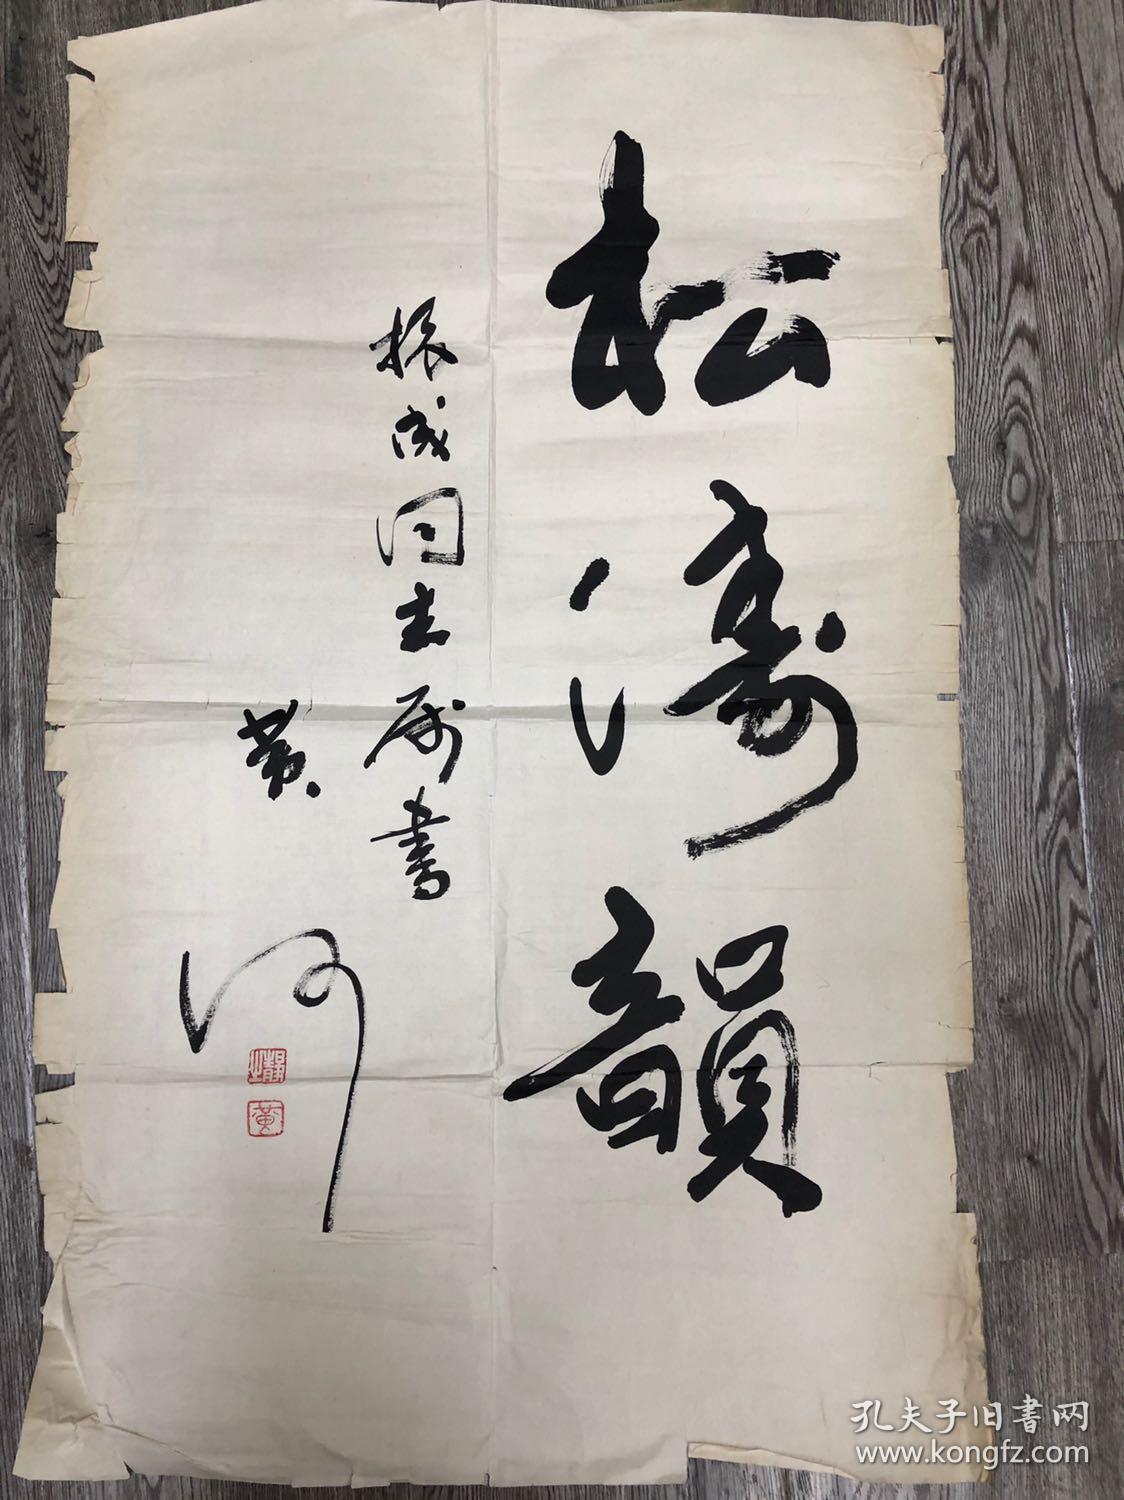 松濤韻
振成同志属書
黄河
静之
黄
孔夫子旧書网
www.kongfz.com